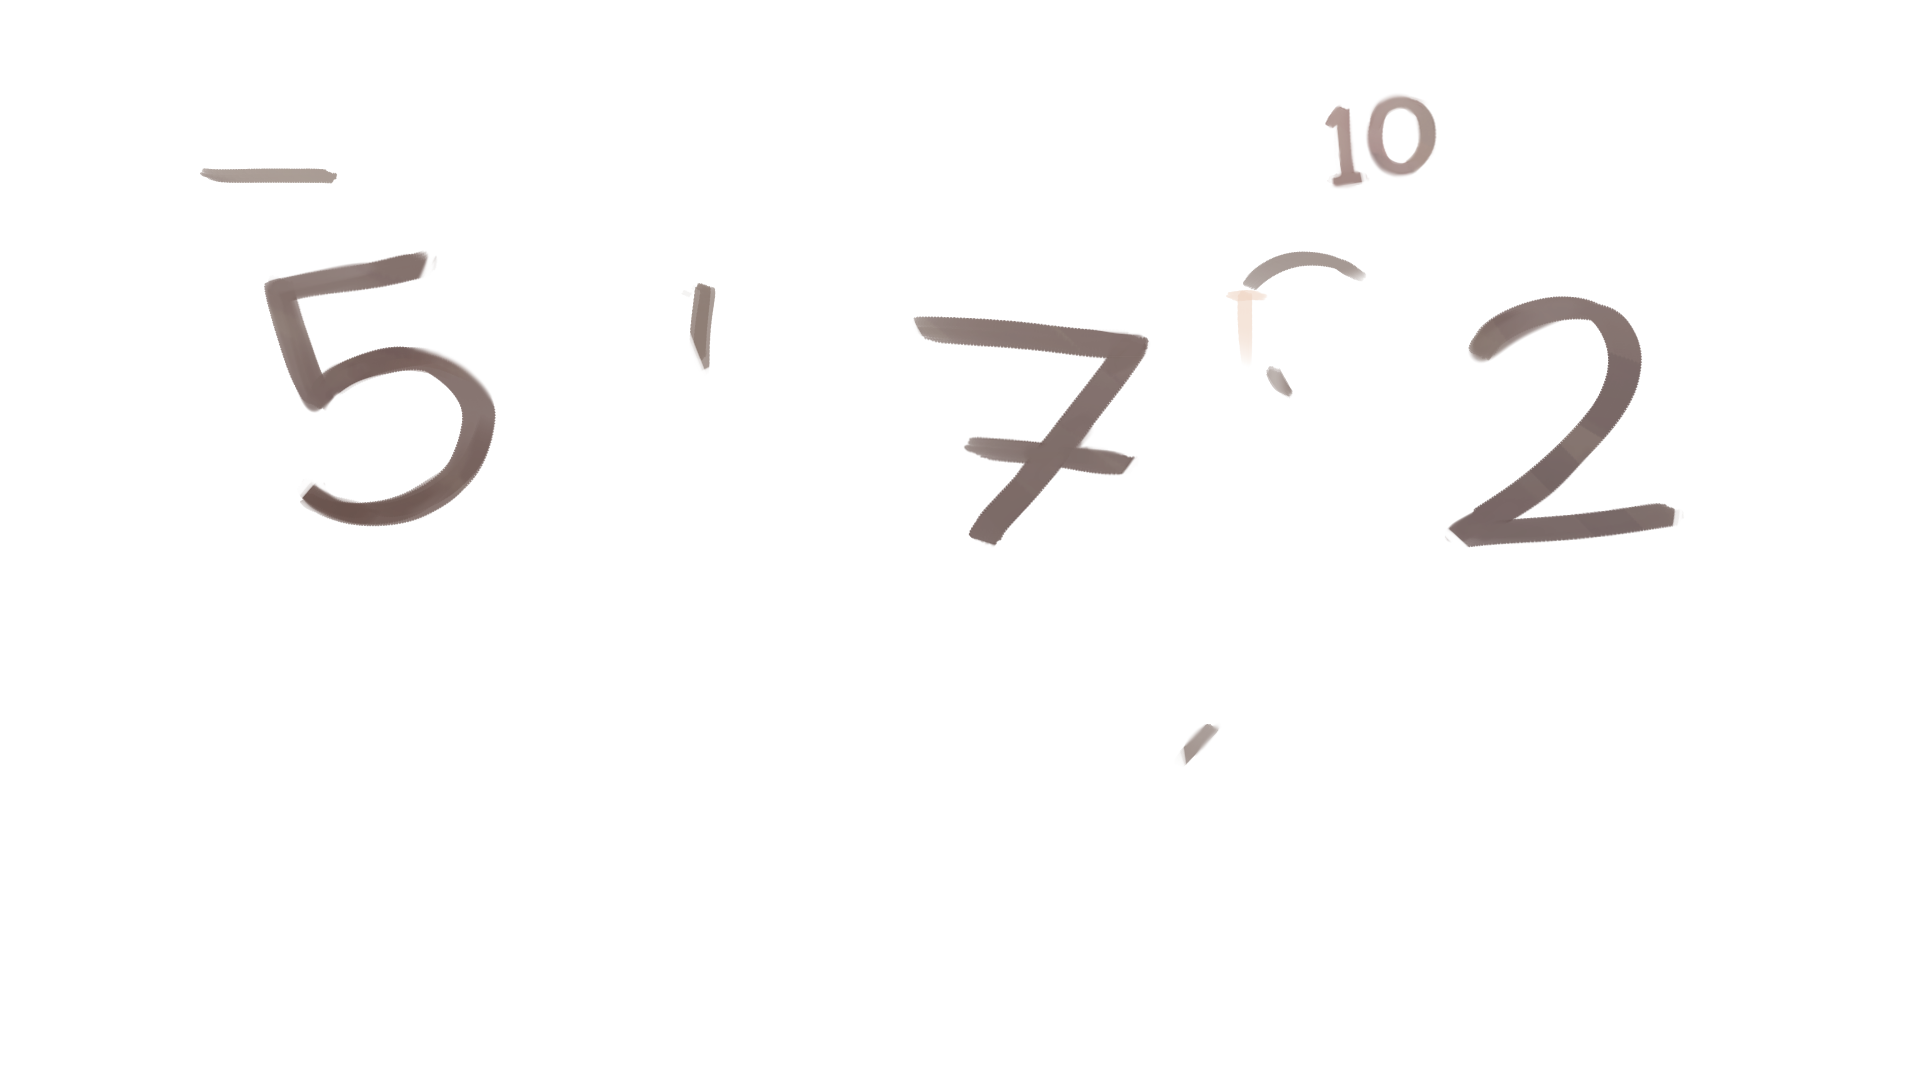 10
5 7 2